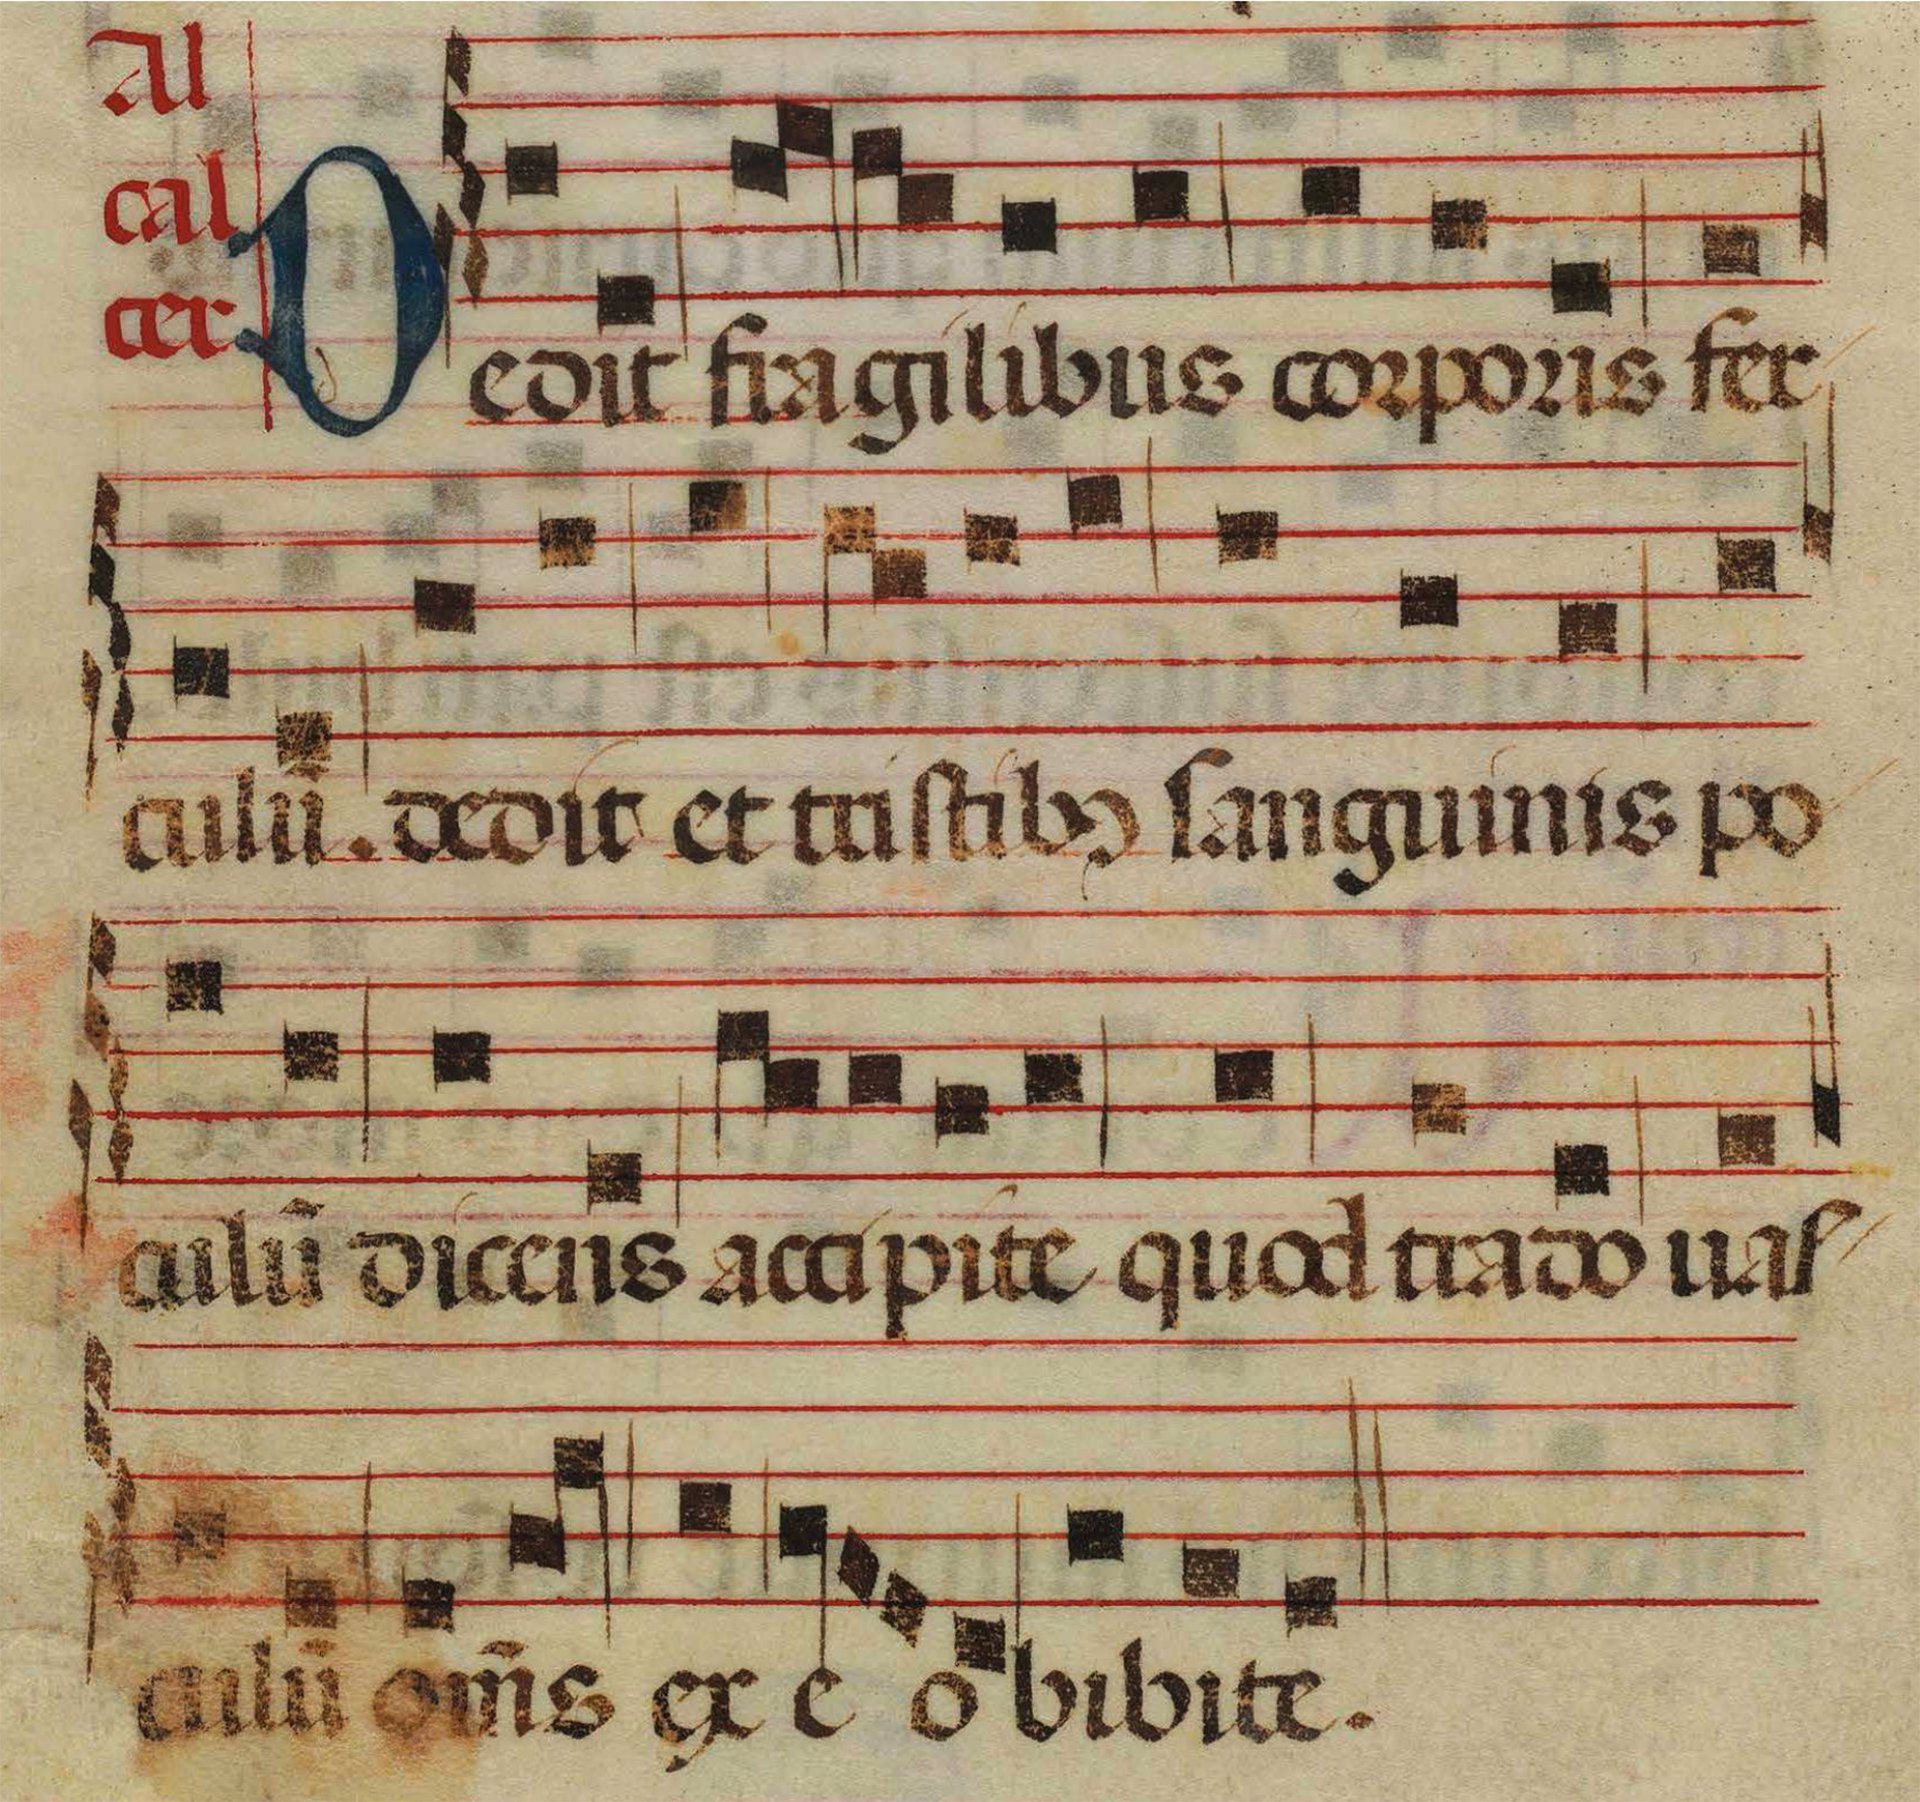 Al
cal
cer
Dedit fragilibus corporis fer
culū. dedit et tristibꝫ sanguinis po
culū dicens accipite quod trado uas
culū om̄s ex eo bibite.